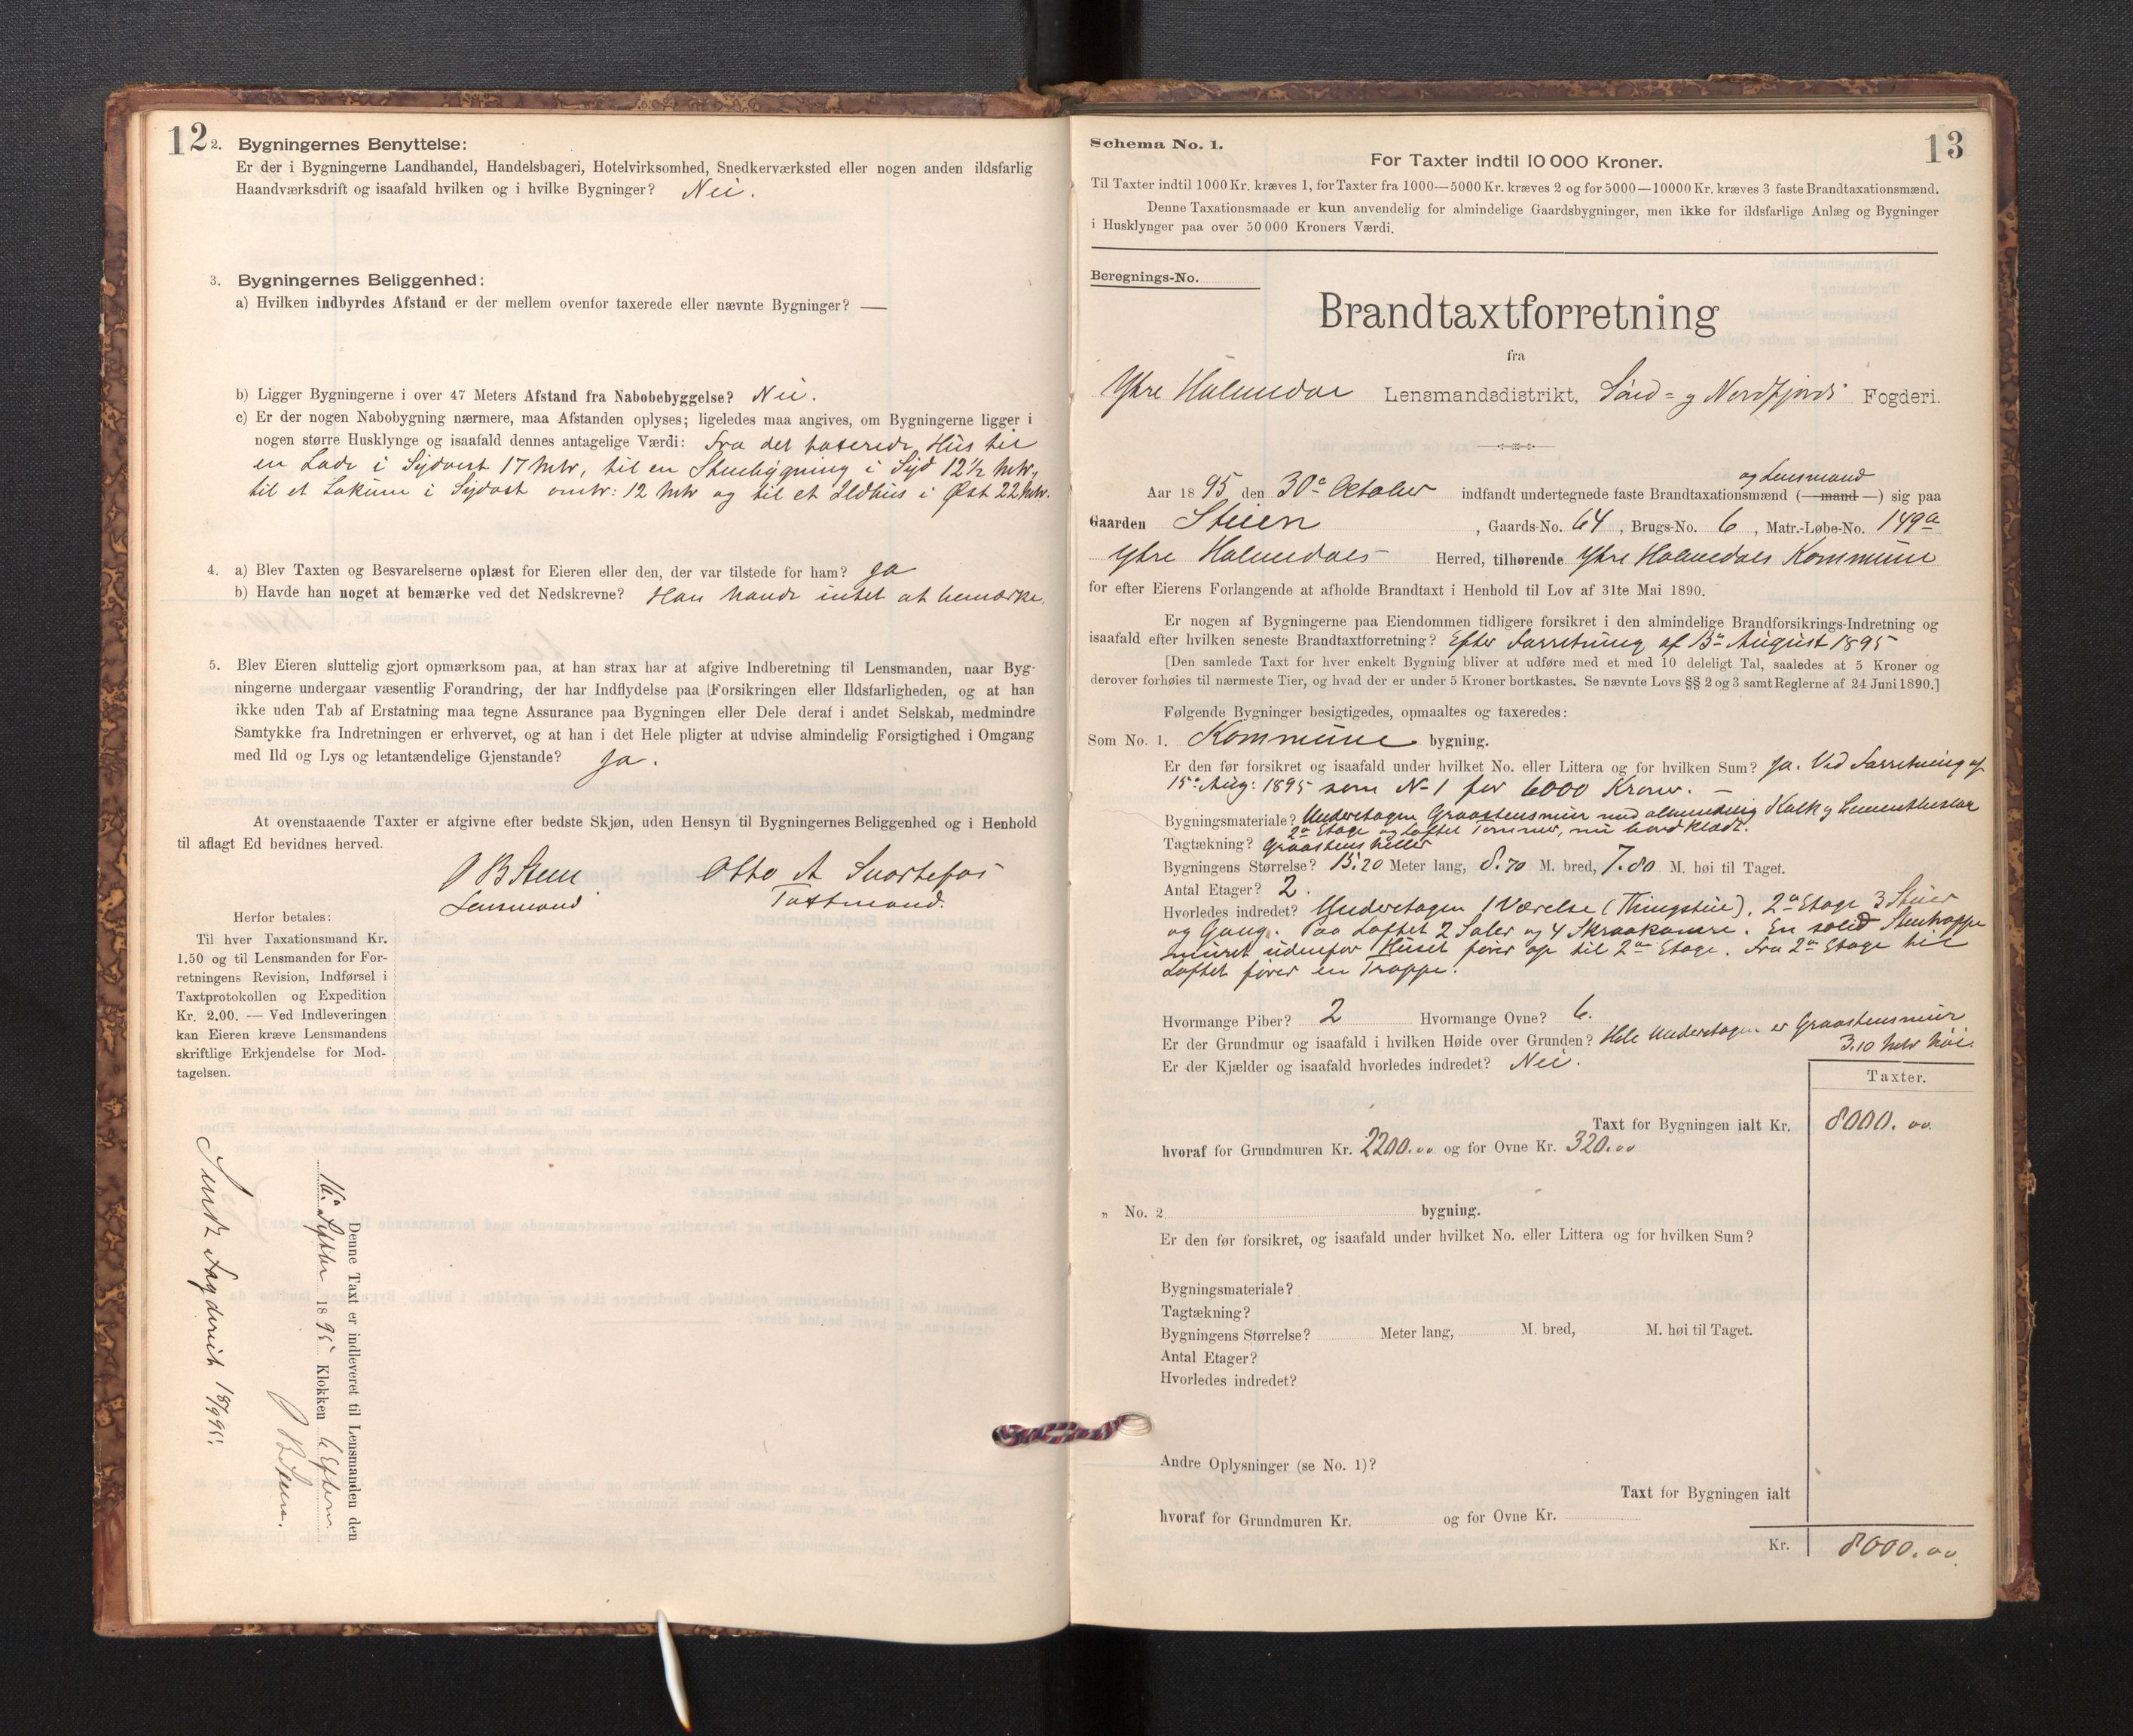 12
2. Bygningernes Benyttelse:
Er der i Bygningerne Landhandel, Handelsbageri, Hotelvirksomhed, Snedkerværksted eller nogen anden ildsfarlig
Haandværksdrift og isaafald hvilken og i hvilke Bygninger? Nei.
3. Bygningernes Beliggenhed:
a) Hvilken indbyrdes Afstand er der mellem ovenfor taxerede eller nævnte Bygninger? —
b) Ligger Bygningerne i over 47 Meters Afstand fra Nabobebyggelse? Nei.
c) Er der nogen Nabobygning nærmere, maa Afstanden oplyses; ligeledes maa angives, om Bygningerne ligger i
nogen større Husklynge og isaafald dennes antagelige Værdi: Fra det taxerede Hus til
en Lade i Sydvest 17 Mtr, til en Stuebygning i Syd 12½ Mtr,
til et Lokum i Sydost omtr: 12 Mtr og til et Ildhus i Øst 22 Mtr.
4. a) Blev Taxten og Besvarelserne oplæst for Eieren eller den, der var tilstede for ham? Ja
b) Havde han noget at bemærke ved det Nedskrevne? Han havde intet at bemærke.
5. Blev Eieren sluttelig gjort opmærksom paa, at han strax har at afgive Indberetning til Lensmanden, naar Byg-
ningerne undergaar væsentlig Forandring, der har Indflydelse paa Forsikringen eller Ildsfarligheden, og at han
ikke uden Tab af Erstatning maa tegne Assurance paa Bygningen eller Dele deraf i andet Selskab, medmindre
Samtykke fra Indretningen er erhvervet, og at han i det Hele pligter at udvise almindelig Forsigtighed i Omgang
med Ild og Lys og letantændelige Gjenstande? Ja.
At ovenstaaende Taxter er afgivne efter bedste Skjøn, uden Hensyn til Bygningernes Beliggenhed og i Henhold
til aflagt Ed bevidnes herved.
Otto A Svartefos
Lensmand Taxtmand.
Herfor betales:
Til hver Taxationsmand Kr.
1.50 og til Lensmanden for For-
retningens Revision, Indførsel i
Taxtprotokollen og Expedition
Kr. 2.00. — Ved Indleveringen
kan Eieren kræve Lensmandens
skriftlige Erkjendelse for Mod-
tagelsen.
Denne Taxt er indleveret til Lensmanden den
1895 Klokken 6 Efterm.
Sendt Fogderiet
13
Schema No. 1.
For Taxter indtil 10 000 Kroner.
Til Taxter indtil 1000 Kr. kræves 1, for Taxter fra 1000—5000 Kr. kræves 2 og for 5000—10000 Kr. kræves 3 faste Brandtaxationsmænd.
Denne Taxationsmaade er kun anvendelig for almindelige Gaardsbygninger, men ikke for ildsfarlige Anlæg og Bygninger
i Husklynger paa over 50 000 Kroners Værdi.
Beregnings-No.
Brandtaxtforretning
fra
Ytre Holmedal Lensmandsdistrikt, Sønd- og Nordfjords Fogderi.
og Lensmand
Aar 1895 den 30te Oktober indfandt undertegnede faste Brandtaxationsmænd (—mand—) sig paa
Gaarden Steien, Gaards-No. 64, Brugs-No. 6, Matr.-Løbe-No. 149a
Ytre Holmedals Herred, tilhørende Ytre Holmedals Kommune
for efter Eierens Forlangende at afholde Brandtaxt i Henhold til Lov af 31te Mai 1890.
Er nogen af Bygningerne paa Eiendommen tidligere forsikret i den almindelige Brandforsikrings-Indretning og
isaafald efter hvilken seneste Brandtaxtforretning? Efter Forretning af August 1895
[Den samlede Taxt for hver enkelt Bygning bliver at udføre med et med 10 deleligt Tal, saaledes at 5 Kroner og
derover forhøies til nærmeste Tier, og hvad der er under 5 Kroner bortkastes. Se nævnte Lovs §§ 2 og 3 samt Reglerne af 24 Juni 1890.]
Følgende Bygninger besigtigedes, opmaaltes og taxeredes:
Som No. 1. Kommune bygning.
Er den før forsikret og isaafald under hvilket No. eller Littera og for hvilken Sum? Ja. Ved Forretning af
15de Aug: 1895 som No 1 for 6000 Kroner. —
Bygningsmateriale? Underetagen Graastensmur med almindelig Kalk og Cementpuds
2den Etage og Loftet Tømmer, nu bordklædt.
Tagtækning? Graastensheller
Bygningens Størrelse? 15.20 Meter lang, 8.70 M. bred, 7.80 M. høi til Taget.
Antal Etager? 2.
Hvorledes indredet? Underetagen 1 Værelse (Thingstue), 2den Etage 3 Stuer
og Gang. Paa Loftet 2 Saler og 4 Skraakamre. En solid Stentrappe
muret udenfor Huset fører op til 2den Etage. Fra 2den Etage til
Loftet fører en Trappe.
Hvormange Piber? 2 Hvormange Ovne? 6.
Er der Grundmur og isaafald i hvilken Høide over Grunden? Hele Underetagen er Graastensmur
3.10 Mtr høi.
Er der Kjælder og isaafald hvorledes indredet? Nei.
Taxter.
Taxt for Bygningen ialt Kr. 8000.00
hvoraf for Grundmuren Kr. 2200.00 og for Ovne Kr. 320.00
„ No. 2 bygning.
Er den før forsikret, og isaafald under hvilket No. eller Littera og for hvilken Sum?
Bygningsmateriale?
Tagtækning?
Bygningens Størrelse? Meter lang, M. bred, M. høi til Taget.
Antal Etager?
Hvorledes indredet?
Andre Oplysninger (se No. 1)?
Taxt for Bygningen ialt
hvoraf for Grundmuren Kr. og for Ovne Kr.
Kr. 8000.00